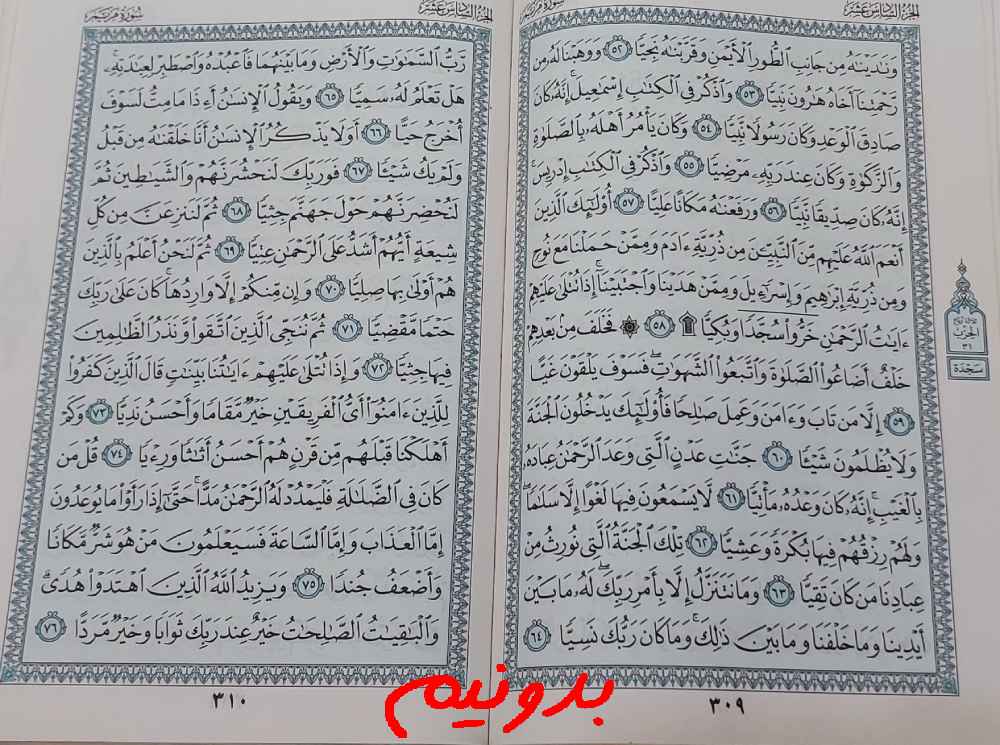 الجزء السادس عشر
سورة مريم
وَنَٰدَيۡنَٰهُ مِن جَانِبِ ٱلطُّورِ ٱلۡأَيۡمَنِ وَقَرَّبۡنَٰهُ نَجِيّٗا ٥٢ وَوَهَبۡنَا لَهُۥ مِن
رَّحۡمَتِنَآ أَخَاهُ هَٰرُونَ نَبِيّٗا ٥٣ وَٱذۡكُرۡ فِي ٱلۡكِتَٰبِ إِسۡمَٰعِيلَۚ إِنَّهُۥ كَانَ
صَادِقَ ٱلۡوَعۡدِ وَكَانَ رَسُولٗا نَّبِيّٗا ٥٤ وَكَانَ يَأۡمُرُ أَهۡلَهُۥ بِٱلصَّلَوٰةِ
وَٱلزَّكَوٰةِ وَكَانَ عِندَ رَبِّهِۦ مَرۡضِيّٗا ٥٥ وَٱذۡكُرۡ فِي ٱلۡكِتَٰبِ إِدۡرِيسَۚ
إِنَّهُۥ كَانَ صِدِّيقٗا نَّبِيّٗا ٥٦ وَرَفَعۡنَٰهُ مَكَانًا عَلِيًّا ٥٧ أُوْلَٰٓئِكَ ٱلَّذِينَ
أَنۡعَمَ ٱللَّهُ عَلَيۡهِم مِّنَ ٱلنَّبِيِّـۧنَ مِن ذُرِّيَّةِ ءَادَمَ وَمِمَّنۡ حَمَلۡنَا مَعَ نُوحٖ
وَمِن ذُرِّيَّةِ إِبۡرَٰهِيمَ وَإِسۡرَٰٓءِيلَ وَمِمَّنۡ هَدَيۡنَا وَٱجۡتَبَيۡنَآۚ إِذَا تُتۡلَىٰ عَلَيۡهِمۡ
ءَايَٰتُ ٱلرَّحۡمَٰنِ خَرُّواْۤ سُجَّدٗا وَبُكِيّٗا۩ ٥٨ ۞ فَخَلَفَ مِنۢ بَعۡدِهِمۡ
خَلۡفٌ أَضَاعُواْ ٱلصَّلَوٰةَ وَٱتَّبَعُواْ ٱلشَّهَوَٰتِۖ فَسَوۡفَ يَلۡقَوۡنَ غَيًّا
٥٩ إِلَّا مَن تَابَ وَءَامَنَ وَعَمِلَ صَٰلِحٗا فَأُوْلَٰٓئِكَ يَدۡخُلُونَ ٱلۡجَنَّةَ
وَلَا يُظۡلَمُونَ شَيۡـٔٗا ٦٠ جَنَّٰتِ عَدۡنٍ ٱلَّتِي وَعَدَ ٱلرَّحۡمَٰنُ عِبَادَهُۥ
بِٱلۡغَيۡبِۚ إِنَّهُۥ كَانَ وَعۡدُهُۥ مَأۡتِيّٗا ٦١ لَّا يَسۡمَعُونَ فِيهَا لَغۡوًا إِلَّا سَلَٰمٗاۖ
وَلَهُمۡ رِزۡقُهُمۡ فِيهَا بُكۡرَةٗ وَعَشِيّٗا ٦٢ تِلۡكَ ٱلۡجَنَّةُ ٱلَّتِي نُورِثُ مِنۡ
عِبَادِنَا مَن كَانَ تَقِيّٗا ٦٣ وَمَا نَتَنَزَّلُ إِلَّا بِأَمۡرِ رَبِّكَۖ لَهُۥ مَا بَيۡنَ
أَيۡدِينَا وَمَا خَلۡفَنَا وَمَا بَيۡنَ ذَٰلِكَۚ وَمَا كَانَ رَبُّكَ نَسِيّٗا ٦٤
الحزب
٣١
سجدة
٣٠٩
سورة مريم
الجزء السادس عشر
رَّبُّ ٱلسَّمَٰوَٰتِ وَٱلۡأَرۡضِ وَمَا بَيۡنَهُمَا فَٱعۡبُدۡهُ وَٱصۡطَبِرۡ لِعِبَٰدَتِهِۦۚ
هَلۡ تَعۡلَمُ لَهُۥ سَمِيّٗا ٦٥ وَيَقُولُ ٱلۡإِنسَٰنُ أَءِذَا مَا مِتُّ لَسَوۡفَ
أُخۡرَجُ حَيًّا ٦٦ أَوَلَا يَذۡكُرُ ٱلۡإِنسَٰنُ أَنَّا خَلَقۡنَٰهُ مِن قَبۡلُ
وَلَمۡ يَكُ شَيۡـٔٗا ٦٧ فَوَرَبِّكَ لَنَحۡشُرَنَّهُمۡ وَٱلشَّيَٰطِينَ ثُمَّ
لَنُحۡضِرَنَّهُمۡ حَوۡلَ جَهَنَّمَ جِثِيّٗا ٦٨ ثُمَّ لَنَنزِعَنَّ مِن كُلِّ
شِيعَةٍ أَيُّهُمۡ أَشَدُّ عَلَى ٱلرَّحۡمَٰنِ عِتِيّٗا ٦٩ ثُمَّ لَنَحۡنُ أَعۡلَمُ بِٱلَّذِينَ
هُمۡ أَوۡلَىٰ بِهَا صِلِيّٗا ٧٠ وَإِن مِّنكُمۡ إِلَّا وَارِدُهَاۚ كَانَ عَلَىٰ رَبِّكَ
حَتۡمٗا مَّقۡضِيّٗا ٧١ ثُمَّ نُنَجِّي ٱلَّذِينَ ٱتَّقَواْ وَّنَذَرُ ٱلظَّٰلِمِينَ
فِيهَا جِثِيّٗا ٧٢ وَإِذَا تُتۡلَىٰ عَلَيۡهِمۡ ءَايَٰتُنَا بَيِّنَٰتٖ قَالَ ٱلَّذِينَ كَفَرُواْ
لِلَّذِينَ ءَامَنُوٓاْ أَيُّ ٱلۡفَرِيقَيۡنِ خَيۡرٞ مَّقَامٗا وَأَحۡسَنُ نَدِيّٗا ٧٣ وَكَمۡ
أَهۡلَكۡنَا قَبۡلَهُم مِّن قَرۡنٍ هُمۡ أَحۡسَنُ أَثَٰثٗا وَرِءۡيٗا ٧٤ قُلۡ مَن
كَانَ فِي ٱلضَّلَٰلَةِ فَلۡيَمۡدُدۡ لَهُ ٱلرَّحۡمَٰنُ مَدًّاۚ حَتَّىٰٓ إِذَا رَأَوۡاْ مَا يُوعَدُونَ
إِمَّا ٱلۡعَذَابَ وَإِمَّا ٱلسَّاعَةَ فَسَيَعۡلَمُونَ مَنۡ هُوَ شَرّٞ مَّكَانٗا
وَأَضۡعَفُ جُندٗا ٧٥ وَيَزِيدُ ٱللَّهُ ٱلَّذِينَ ٱهۡتَدَوۡاْ هُدٗىۗ
وَٱلۡبَٰقِيَٰتُ ٱلصَّٰلِحَٰتُ خَيۡرٌ عِندَ رَبِّكَ ثَوَابٗا وَخَيۡرٞ مَّرَدًّا ٧٦
٣١٠
بدونیم